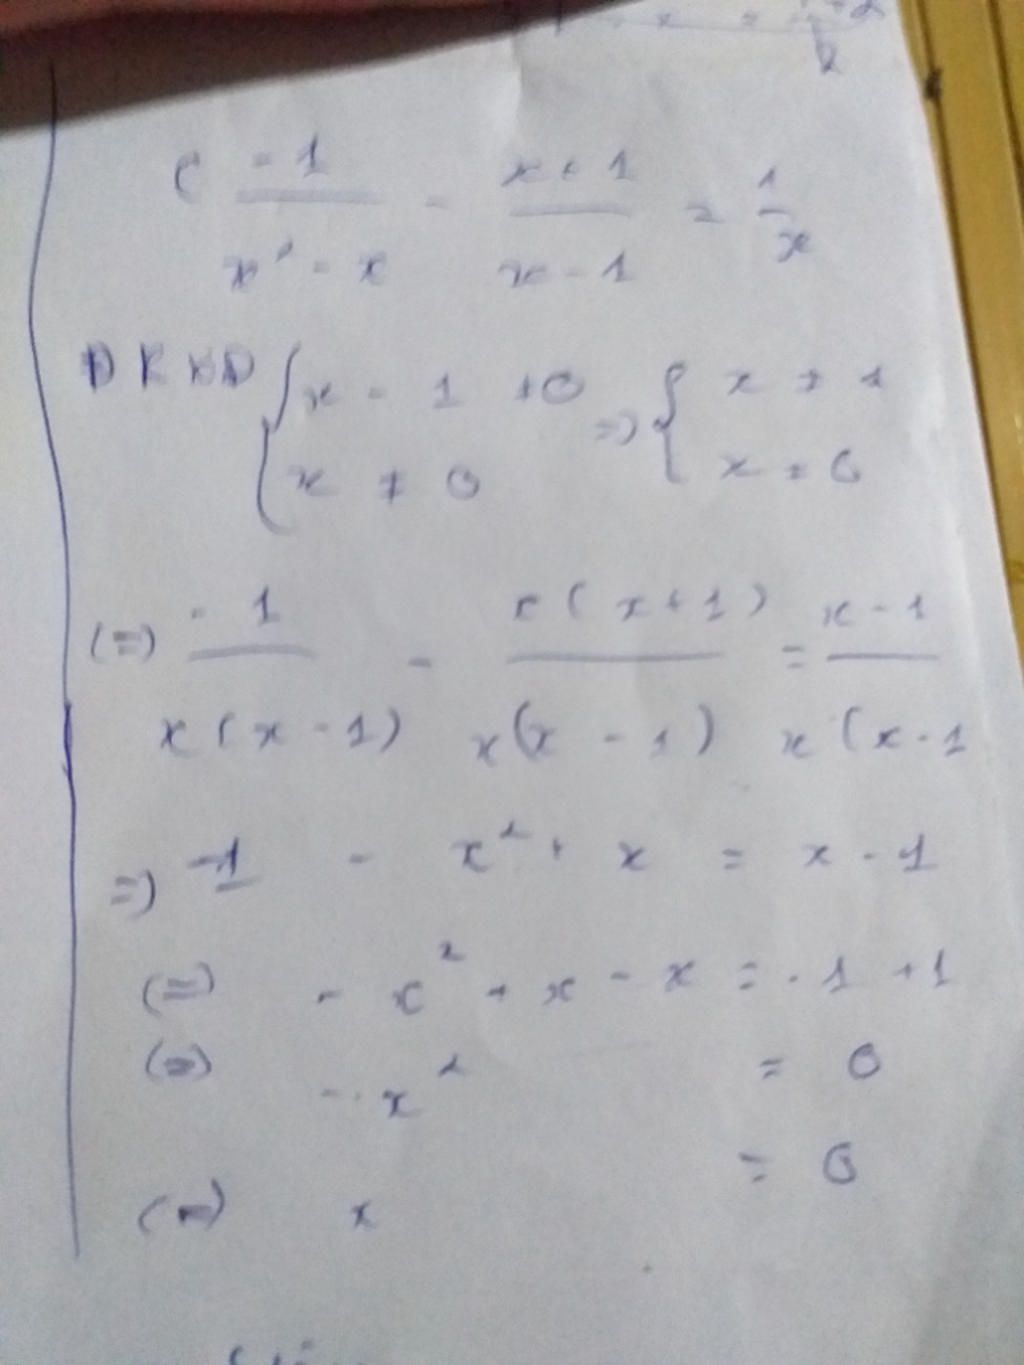 c -1/(x² - x) - (x + 1)/(x - 1) = 1/x
ĐKXĐ { x - 1 ≠ 0 => { x ≠ 1
x ≠ 0 x ≠ 0
(=) -1/(x(x - 1)) - x(x + 1)/(x(x - 1)) = x - 1/(x(x - 1
=) -1 - x² + x = x - 1
(=) - x² + x - x = -1 + 1
(=) - x² = 0
(=) x = 0